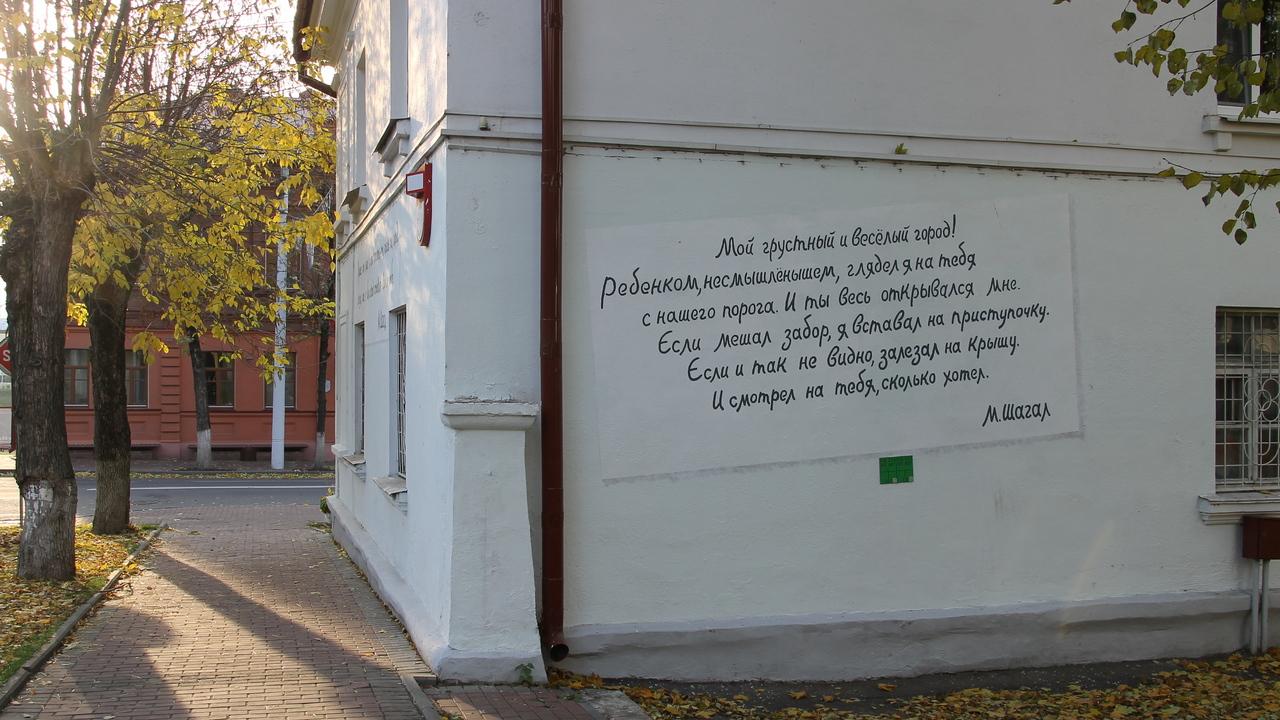 Мой грустный и весёлый город!
Ребенком, несмышлёнышем, глядел я на тебя
с нашего порога. И ты весь открывался мне.
Если мешал забор, я вставал на приступочку.
Если и так не видно, залезал на крышу.
И смотрел на тебя, сколько хотел.
М.Шагал